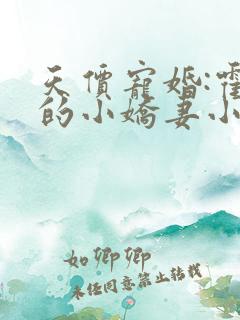 天價寵婚:霍
的小嬌妻小
如卿卿
未经同意禁止转载